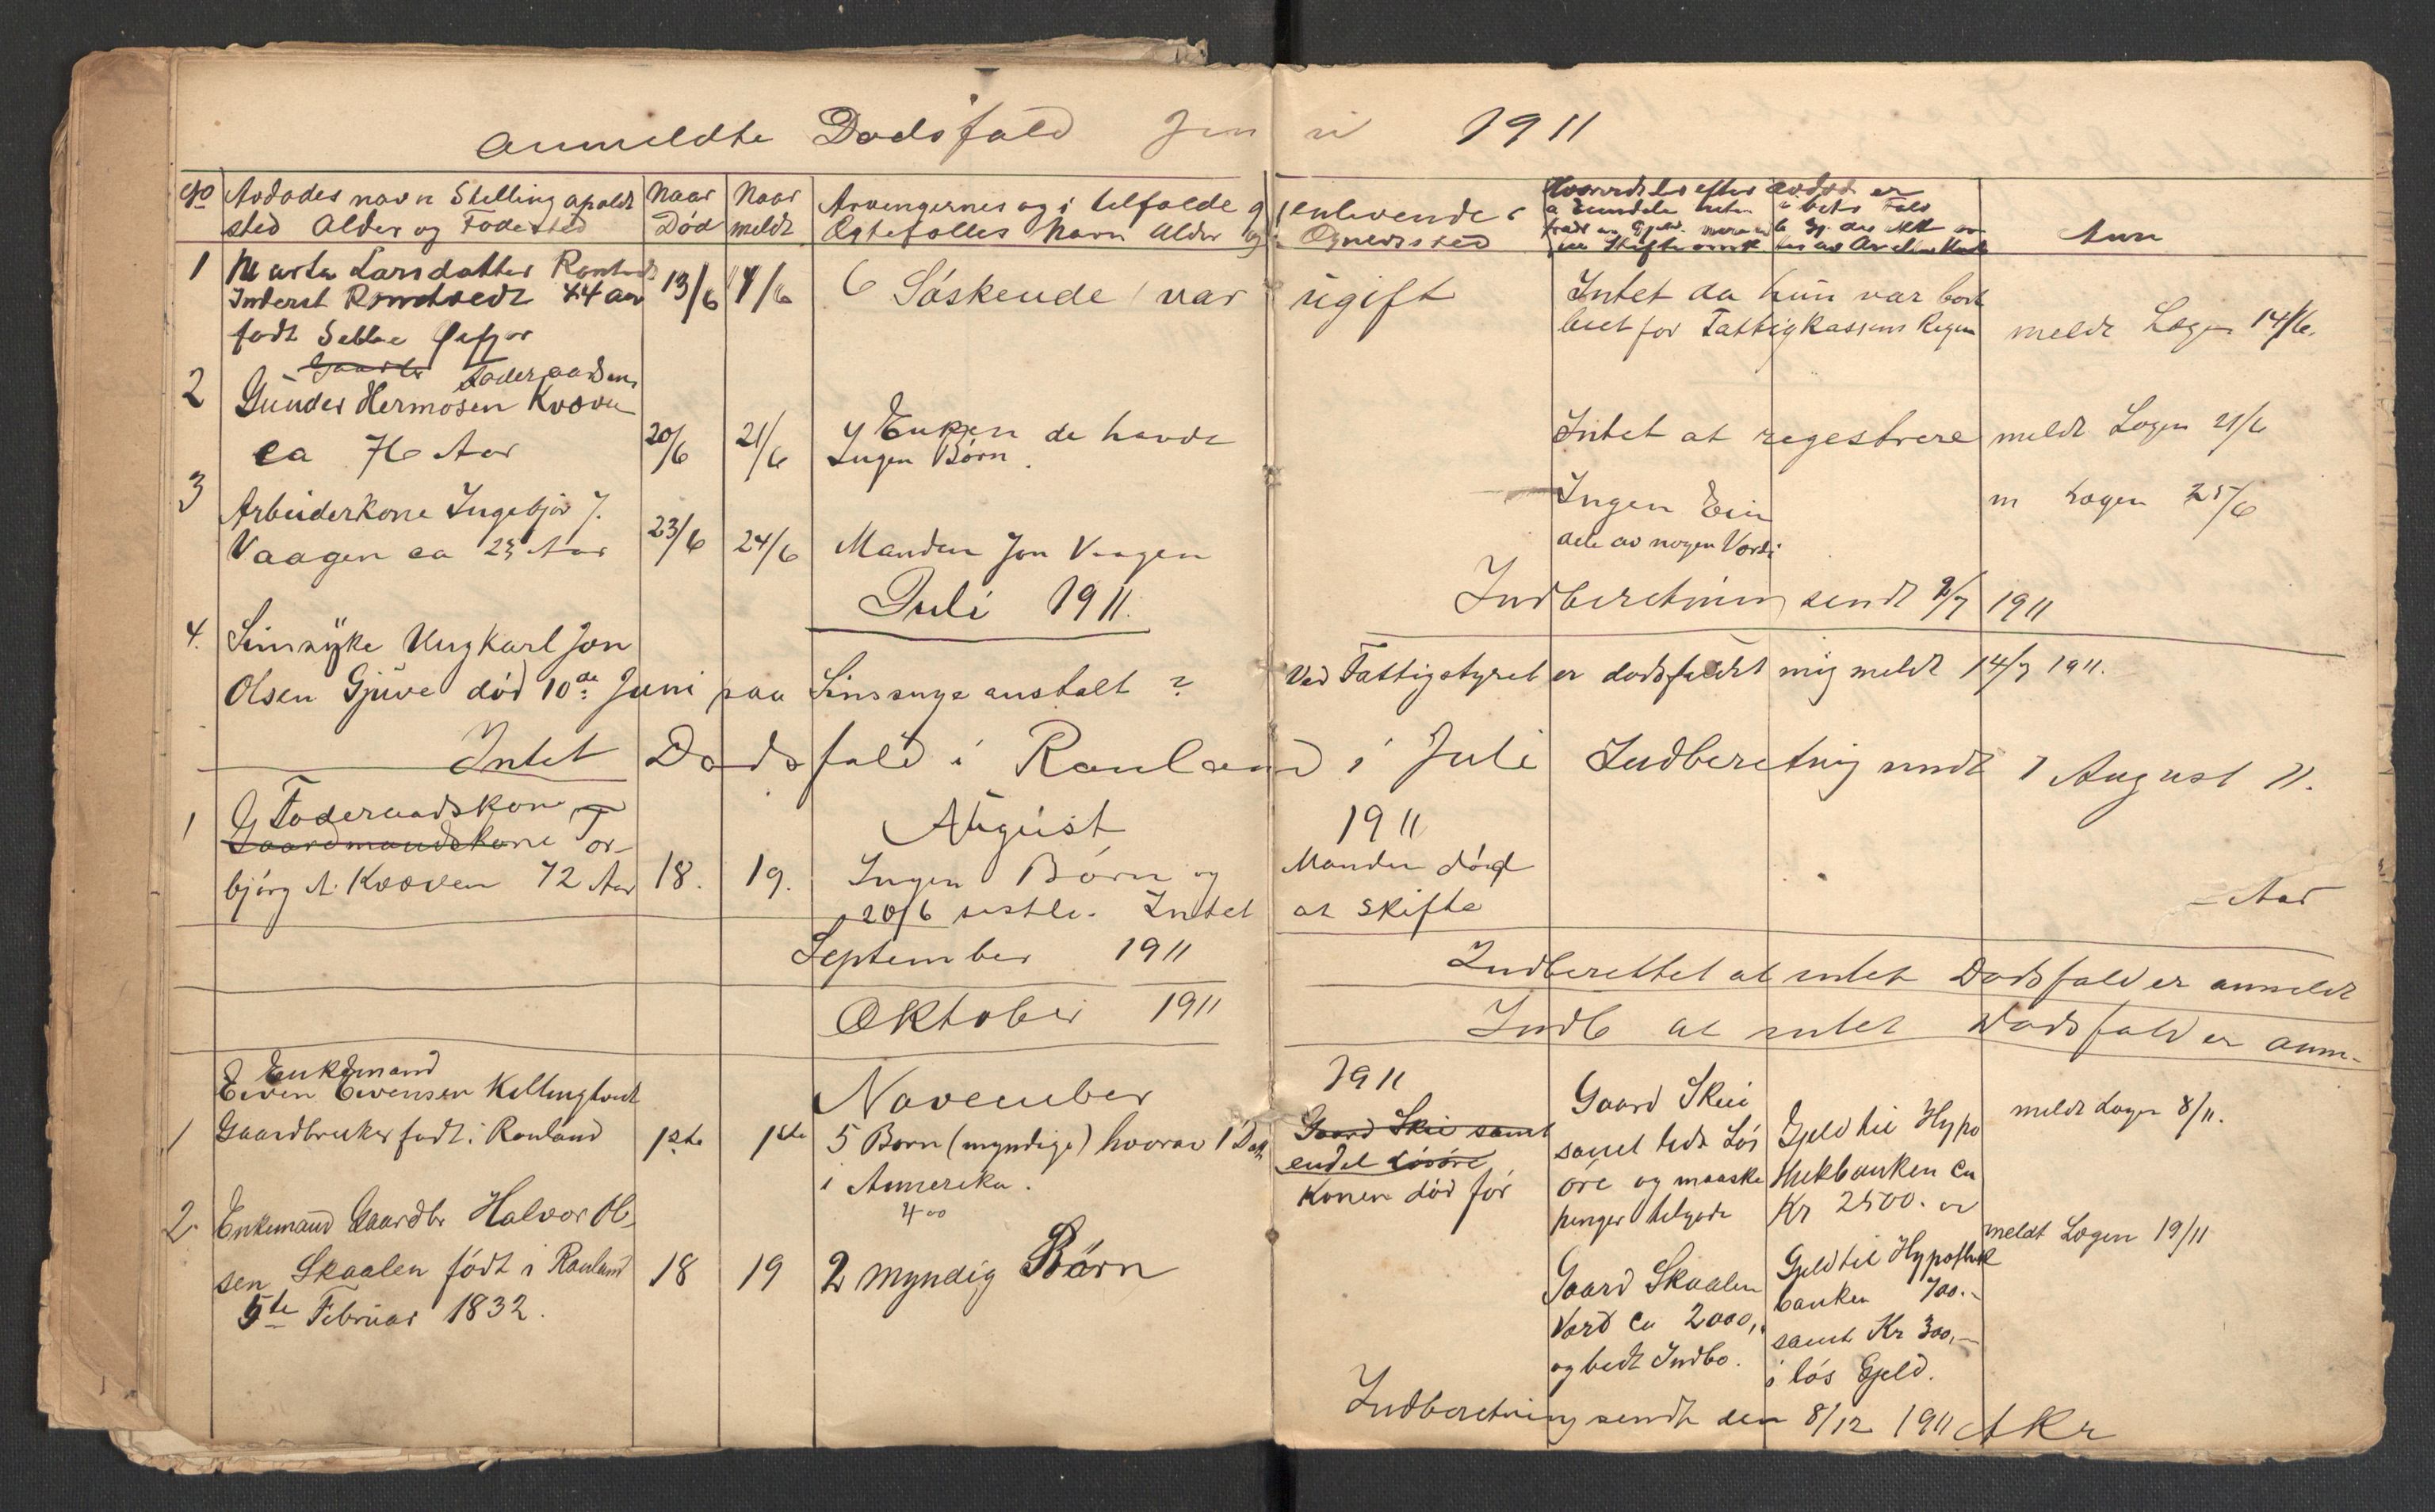 Anmeldte Dødsfald Juni 1911
No Avdødes navn Stilling opold Naar Naar Arvingernes og i tilfælde gjenlevende
sted Alder og Fødested Død meldt Egtefælles Navn Alder og Opholdssted Anm
1 Marta Larsdatter 13/6 14/6 6 Søskende / var ugift Intet da hun var bort
Inderst 44 aar
født Øefjor
sat for Fattigkassens Regn meldt Lagen 14/6.
Føderaadsm
2 Gunder Hermosen Kvoven
ca 76 Aar 20/6 21/6 Enken de havde Intet at regestrere meldt Lagen 21/6
Ingen Børn.
3 Arbeiderkone Ingebjør J. Ingen Ein m Lagen 25/6
Vaagen ca 23 Aar 23/6 24/6 Manden Jon Vaagen dele av nogen Værdi
Juli 1911. Indberetning sendt 2/7 1911
4. Sinsyke Ungkarl Jon
Olsen Gjuve død 10de Juni paa Sinssygeanstalt ? Ved Fattigstyret er dødsfaldet mig meldt 14/7 1911.
Intet Dødsfald i Rauland i Juli Indberetning sendt 1 August 11.
Føderaadskone August 1911
1 Gaardmandskone Tor-
bjørg A. Kvoven 72 Aar 18. 19. Ingen Børn og Manden død
20/6 sistl. Intet at skifte
September 1911 Indberettet at intet Dødsfald er anmeldt
Oktober 1911 Indb at intet Dødsfald er anm-
Enkemand November 1911
Even Evensen
1 Gaardbruker født i Rauland 1ste 1ste 5 Børn (myndige) hvorav 1 Dat
i Amerika.
Gaard Skei samt
endel Løsøre
Konen død før
Gaard Skei
samt lidt Løs
øre og maaske
penger tilgode
Gjeld til Hypo
thekbanken ca
Kr 2500.
meldt Lagen 8/11.
2 Enkemand Gaardbr Halvor Ol-
sen Skaalen født i Rauland 18 19 2 myndig Børn
5te Februar 1832.
400
Gaard Skaalen
Værd ca 2000,
og lidt Indbo.
Gjeld til Hypothek
banken 700.-
samt Kr 300,-
i løs Gjeld.
meldt Lagen 19/11
Indberetning sendt den 8/12 1911 AKr